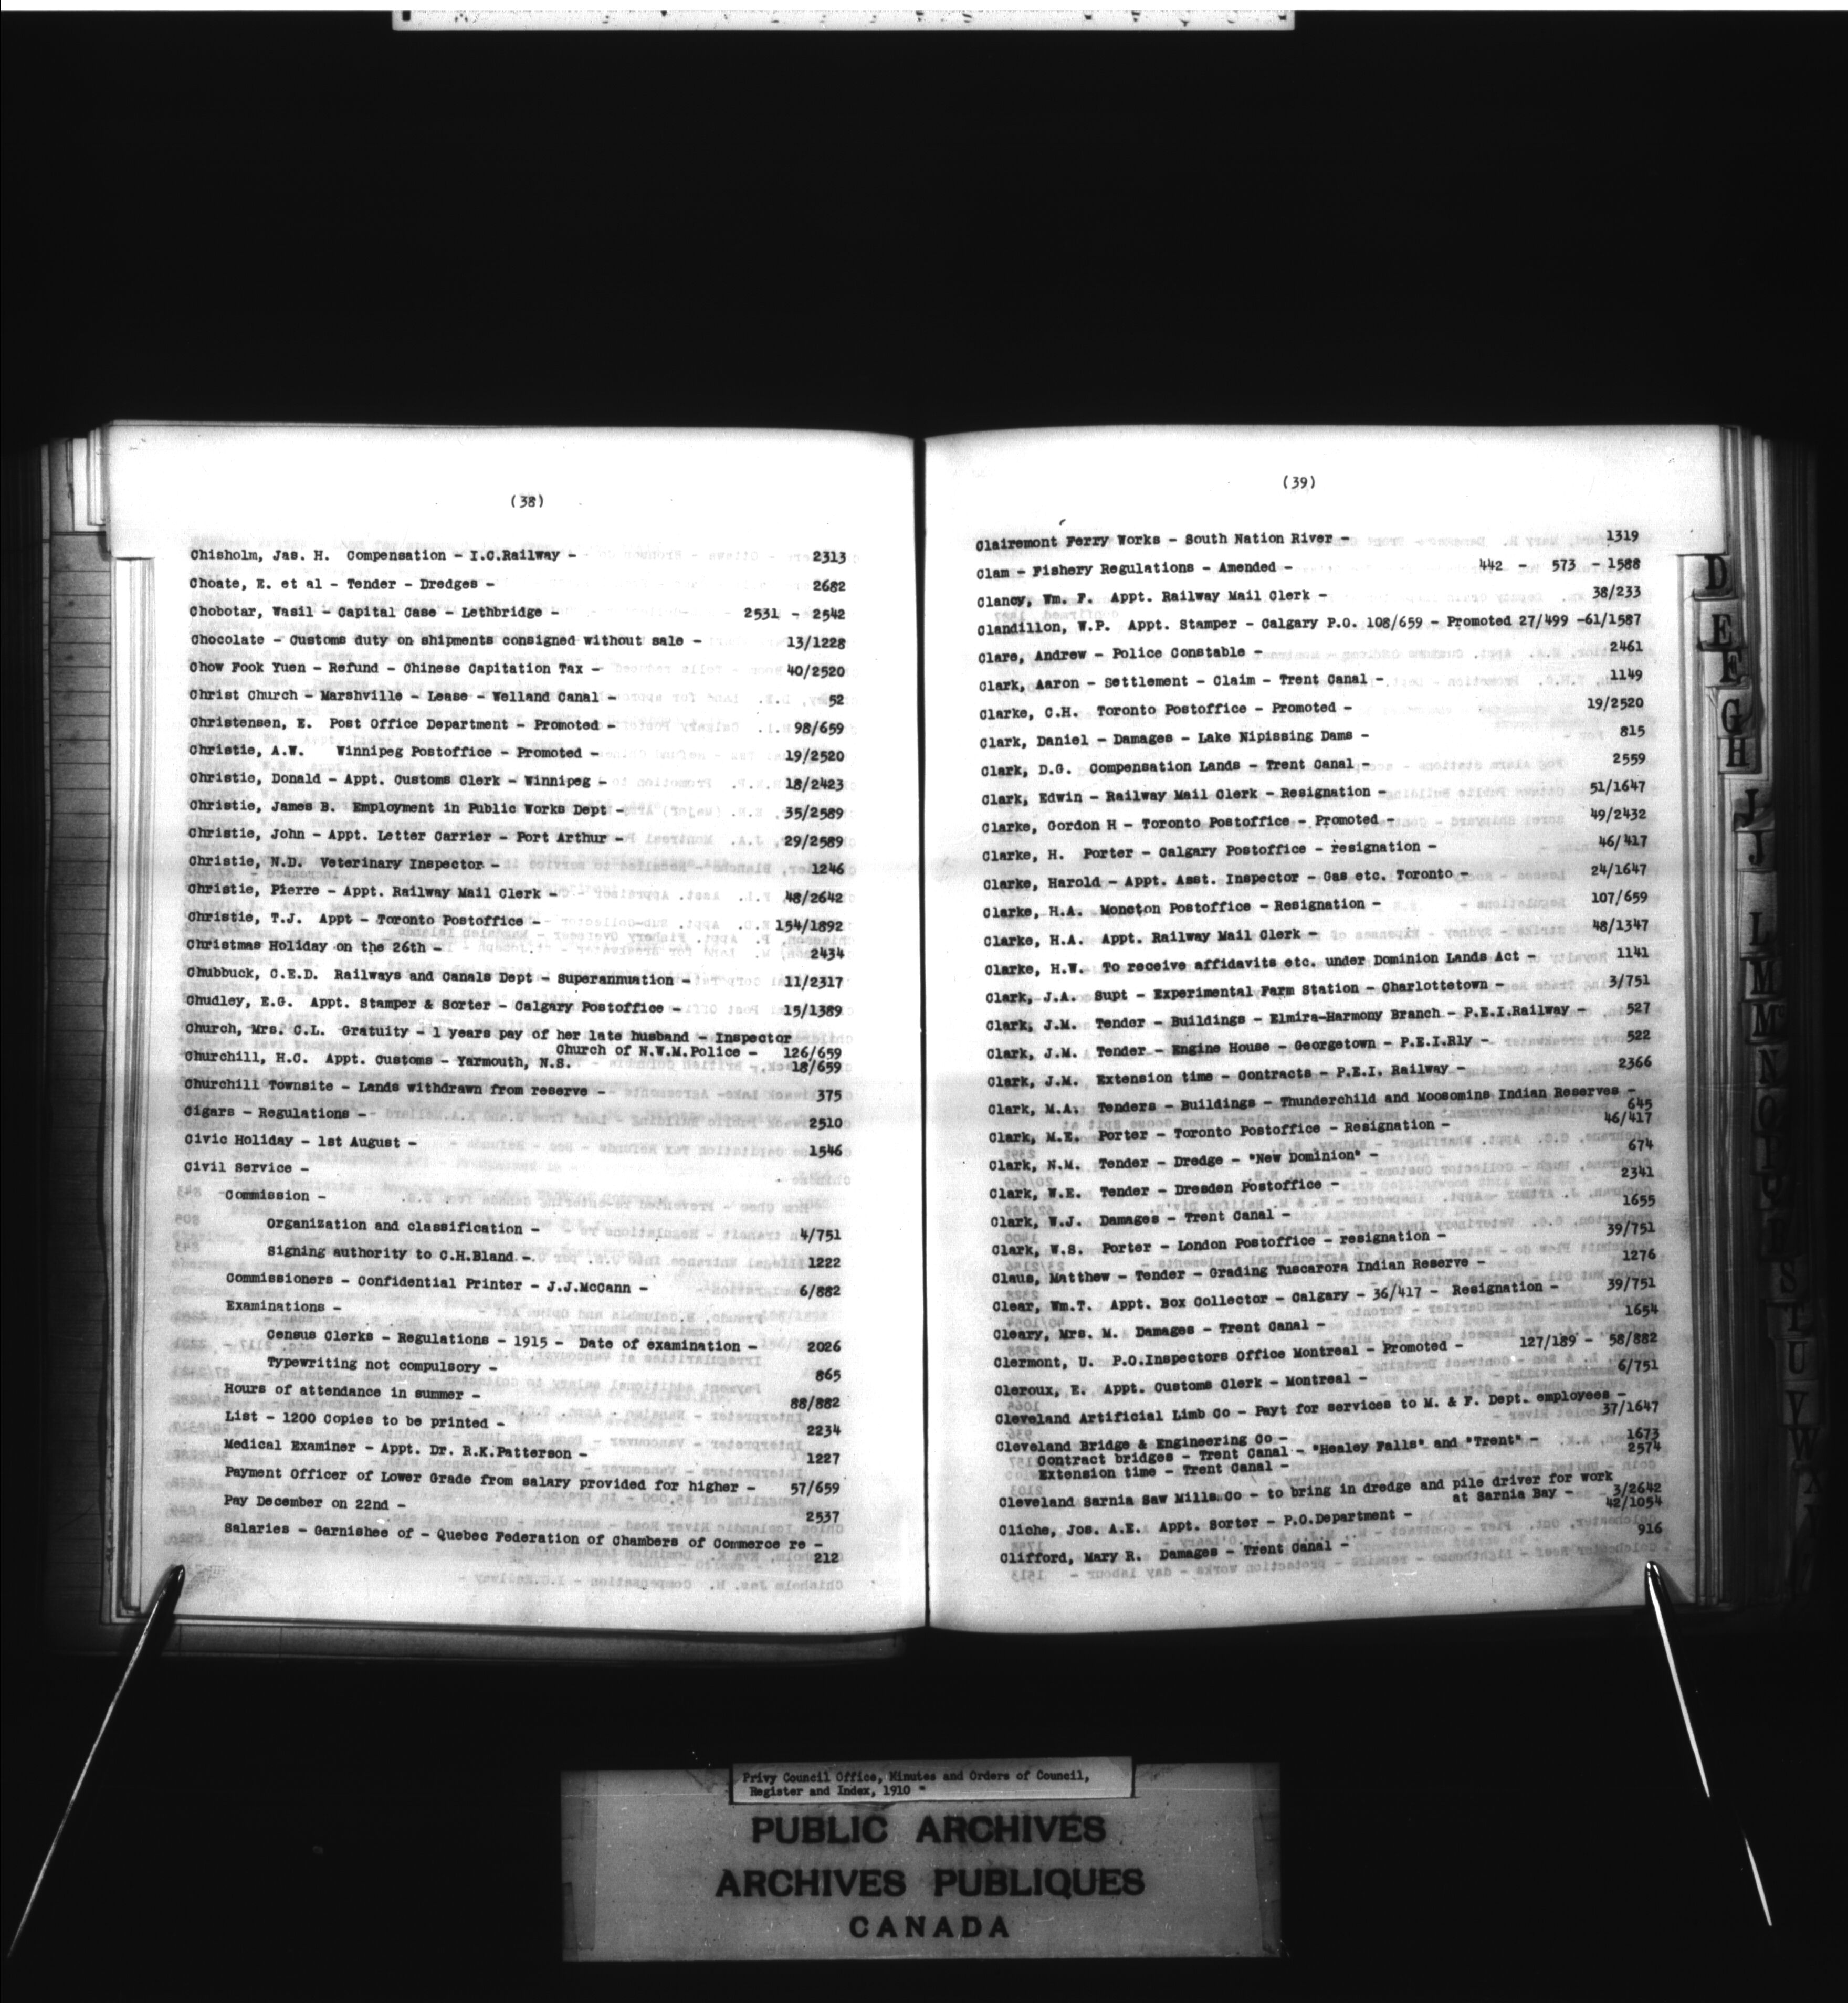 (38)
Chisholm, Jas. H. Compensation - I.C.Railway - 2313
Choate, E. et al - Tender - Dredges - 2682
Chobotar, Wasil - Capital Case - Lethbridge - 2531 - 2542
Chocolate - Customs duty on shipments consigned without sale - 13/1228
Chow Fook Yuen - Refund - Chinese Capitation Tax - 40/2520
Christ Church - Marshville - Lease - Welland Canal - 52
Christensen, E. Post Office Department - Promoted - 98/659
Christie, A.W. Winnipeg Postoffice - Promoted - 19/2520
Christie, Donald - Appt. Customs Clerk - Winnipeg - 18/2423
Christie, James B. Employment in Public Works Dept - 35/2589
Christie, John - Appt. Letter Carrier - Port Arthur - 29/2589
Christie, N.D. Veterinary Inspector - 1246
Christie, Pierre - Appt. Railway Mail Clerk - 48/2642
Christie, T.J. Appt - Toronto Postoffice - 154/1892
Christmas Holiday on the 26th - 2434
Chubbuck, C.E.D. Railways and Canals Dept - Superannuation - 11/2317
Chudley, E.G. Appt. Stamper & Sorter - Calgary Postoffice - 15/1389
Church, Mrs. C.L. Gratuity - 1 years pay of her late husband - Inspector
Church of N.W.M.Police - 126/659
Churchill, H.C. Appt. Customs - Yarmouth, N.S. 18/659
Churchill Townsite - Lands withdrawn from reserve - 375
Cigars - Regulations - 2510
Civic Holiday - 1st August - 1546
Civil Service -
Commission -
Organization and classification - 4/751
Signing authority to C.H.Bland - 1222
Commissioners - Confidential Printer - J.J.McCann - 6/882
Examinations -
Census Clerks - Regulations - 1915 - Date of examination - 2026
Typewriting not compulsory - 865
Hours of attendance in summer - 88/882
List - 1200 copies to be printed - 2234
Medical Examiner - Appt. Dr. R.K.Patterson - 1227
Payment Officer of Lower Grade from salary provided for higher - 57/659
Pay December on 22nd - 2537
Salaries - Garnishee of - Quebec Federation of Chambers of Commerce re -
212
(39)
Clairemont Ferry Works - South Nation River - 1319
Clam - Fishery Regulations - Amended - 442 - 573 - 1588
Clancy, Wm. F. Appt. Railway Mail Clerk - 38/233
Clandillon, W.P. Appt. Stamper - Calgary P.O. 108/659 - Promoted 27/499 -61/1587
Clare, Andrew - Police Constable - 2461
Clark, Aaron - Settlement - Claim - Trent Canal - 1149
Clarke, C.H. Toronto Postoffice - Promoted - 19/2520
Clark, Daniel - Damages - Lake Nipissing Dams - 815
Clark, D.G. Compensation Lands - Trent Canal - 2559
Clark, Edwin - Railway Mail Clerk - Resignation - 51/1647
Clarke, Gordon H - Toronto Postoffice - Promoted - 49/2432
Clarke, H. Porter - Calgary Postoffice - resignation - 46/417
Clarke, Harold - Appt. Asst. Inspector - Gas etc. Toronto - 24/1647
Clarke, H.A. Moncton Postoffice - Resignation - 107/659
Clarke, H.A. Appt. Railway Mail Clerk - 48/1347
Clarke, H.W. To receive affidavits etc. under Dominion Lands Act - 1141
Clark, J.A. Supt - Experimental Farm Station - Charlottetown - 3/751
Clark, J.M. Tender - Buildings - Elmira-Harmony Branch - P.E.I.Railway - 527
Clark, J.M. Tender - Engine House - Georgetown - P.E.I.Rly - 522
Clark, J.M. Extension time - Contracts - P.E.I. Railway - 2366
Clark, M.A. Tenders - Buildings - Thunderchild and Moosomins Indian Reserves -
645
Clark, M.E. Porter - Toronto Postoffice - Resignation - 46/417
Clark, N.M. Tender - Dredge - "New Dominion" - 674
Clark, W.E. Tender - Dresden Postoffice - 2341
Clark, W.J. Damages - Trent Canal - 1655
Clark, W.S. Porter - London Postoffice - resignation - 39/751
Claus, Matthew - Tender - Grading Tuscarora Indian Reserve - 1276
Clear, Wm.T. Appt. Box Collector - Calgary - 36/417 - Resignation - 39/751
Cleary, Mrs. M. Damages - Trent Canal - 1654
Clermont, U. P.O.Inspectors Office Montreal - Promoted - 127/189 - 58/882
Cleroux, E. Appt. Customs Clerk - Montreal - 6/751
Cleveland Artificial Limb Co - Payt for services to M. & F. Dept. employees -
37/1647
Cleveland Bridge & Engineering Co -
Contract bridges - Trent Canal - "Healey Falls" and "Trent" - 1673
Extension time - Trent Canal - 2574
Cleveland Sarnia Saw Mills Co - to bring in dredge and pile driver for work
at Sarnia Bay - 3/2642
Cliche, Jos. A.E. Appt. Sorter - P.O.Department - 42/1054
Clifford, Mary R. Damages - Trent Canal - 916
D
E
F
G
H
I
J
L
M
M
N
O
P
S
T
U
V
W
Privy Council Office, Minutes and Orders of Council,
Register and Index, 1910
PUBLIC ARCHIVES
ARCHIVES PUBLIQUES
CANADA